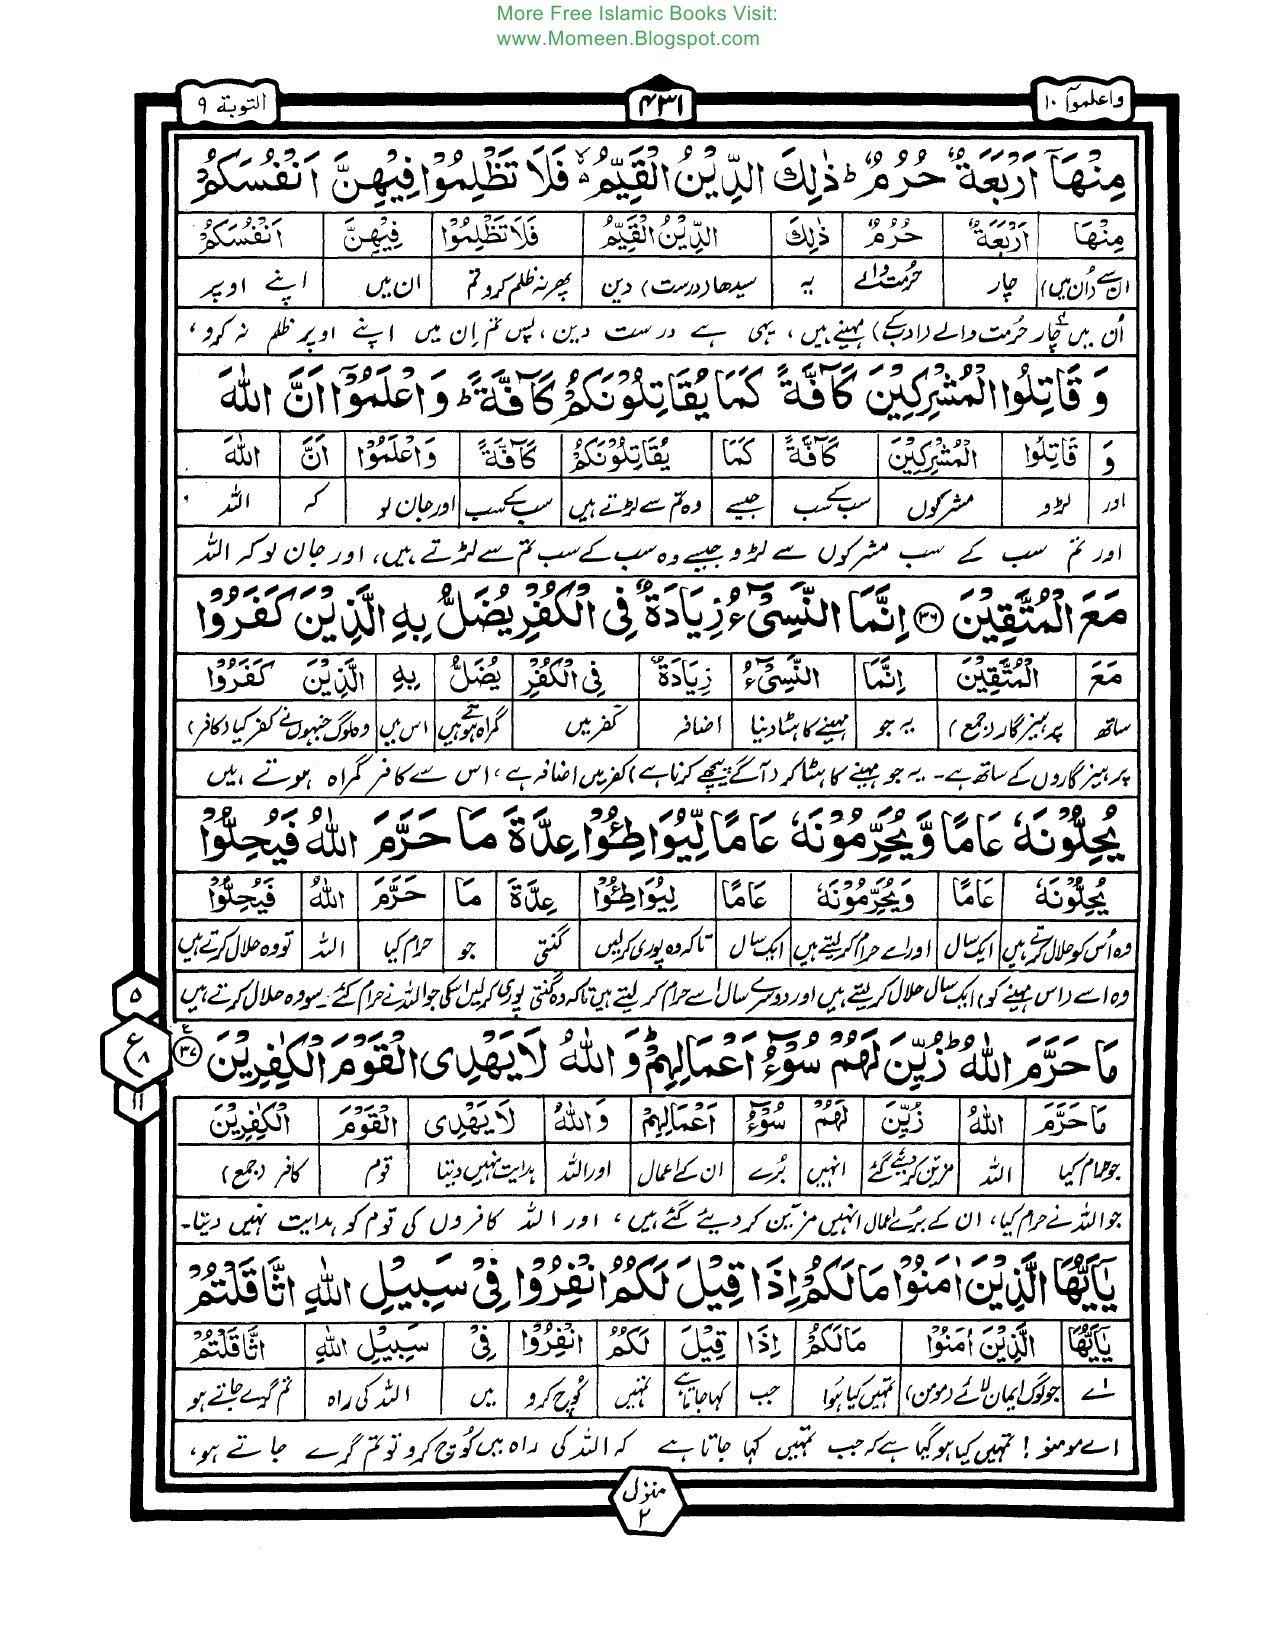 More Free Islamic Books Visit:
www.Momeen.Blogspot.com
واعلموا ١٠
٤٣١
التوبة ٩
مِنْهَآ اَرْبَعَةٌ حُرُمٌ ؕ ذٰلِكَ الدِّيْنُ الْقَيِّمُ ۙ۬ فَلَا تَظْلِمُوْا فِيْهِنَّ اَنْفُسَكُمْ
مِنْهَا اَرْبَعَةٌ حُرُمٌ ذٰلِكَ الدِّيْنُ الْقَيِّمُ فَلَا تَظْلِمُوْا فِيْهِنَّ اَنْفُسَكُمْ
ان سے (اُن میں) چار حُرمت والے یہ سیدھا (درست) دین پھر نہ ظلم کرو تم ان میں اپنے اوپر
اُن میں چار حُرمت والے (ادب کے) مہینے ہیں ، یہی ہے درست دین ، پس تم اِن میں اپنے اوپر ظلم نہ کرو ،
وَ قَاتِلُوا الْمُشْرِكِيْنَ كَآفَّةً كَمَا يُقَاتِلُوْنَكُمْ كَآفَّةً ؕ وَاعْلَمُوْٓا اَنَّ اللّٰهَ
وَ قَاتِلُوا الْمُشْرِكِيْنَ كَآفَّةً كَمَا يُقَاتِلُوْنَكُمْ كَآفَّةً وَاعْلَمُوْٓا اَنَّ اللّٰهَ
اور لڑو مشرکوں سب کے سب جیسے وہ تم سے لڑتے ہیں سب کے سب اور جان لو کہ اللہ
اور تم سب کے سب مشرکوں سے لڑو جیسے وہ سب کے سب تم سے لڑتے ہیں، اور جان لو کہ اللہ
مَعَ الْمُتَّقِيْنَ ﴿۳۶﴾ اِنَّمَا النَّسِيْٓءُ زِيَادَةٌ فِي الْكُفْرِ يُضَلُّ بِهِ الَّذِيْنَ كَفَرُوْا
مَعَ الْمُتَّقِيْنَ اِنَّمَا النَّسِيْٓءُ زِيَادَةٌ فِي الْكُفْرِ يُضَلُّ بِهِ الَّذِيْنَ كَفَرُوْا
ساتھ پرہیزگار (جمع) یہ جو مہینے کا ہٹا دینا اضافہ کفر میں گمراہ ہوتے ہیں اس میں وہ لوگ جنہوں نے کفر کیا (کافر)
پرہیزگاروں کے ساتھ ہے۔ یہ جو مہینے کا ہٹا کر (آگے پیچھے کرنا ہے) کفر میں اضافہ ہے ، اس سے کافر گمراہ ہوتے ہیں
يُحِلُّوْنَهٗ عَامًا وَّيُحَرِّمُوْنَهٗ عَامًا لِّيُوَاطِـُٔوْا عِدَّةَ مَا حَرَّمَ اللّٰهُ فَيُحِلُّوْا
يُحِلُّوْنَهٗ عَامًا وَيُحَرِّمُوْنَهٗ عَامًا لِيُوَاطِـُٔوْا عِدَّةَ مَا حَرَّمَ اللّٰهُ فَيُحِلُّوْا
وہ اُس کو حلال کرتے ہیں ایک سال اور اسے حرام کر لیتے ہیں ایک سال تاکہ وہ پوری کر لیں گنتی جو حرام کیا اللہ تو وہ حلال کرتے ہیں
وہ اسے (اس مہینے کو) ایک سال حلال کر لیتے ہیں اور دوسرے سال اسے حرام کر لیتے ہیں تاکہ وہ گنتی پوری کر لیں اسکی جو اللہ نے حرام کئے۔ سو وہ حلال کرتے ہیں
٥
ع ٨
١١
مَا حَرَّمَ اللّٰهُ ؕ زُيِّنَ لَهُمْ سُوْٓءُ اَعْمَالِهِمْ ؕ وَ اللّٰهُ لَا يَهْدِى الْقَوْمَ الْكٰفِرِيْنَ ﴿۳۷﴾ ع
مَا حَرَّمَ اللّٰهُ زُيِّنَ لَهُمْ سُوْٓءُ اَعْمَالِهِمْ وَاللّٰهُ لَا يَهْدِى الْقَوْمَ الْكٰفِرِيْنَ
جو حرام کیا اللہ مزیّن کر دیئے گئے انہیں بُرے ان کے اعمال اور اللہ ہدایت نہیں دیتا قوم کافر (جمع)
جو اللہ نے حرام کیا، ان کے بُرے اعمال انہیں مزیّن کر دیئے گئے ہیں ، اور اللہ کافروں کی قوم کو ہدایت نہیں دیتا۔
يٰٓاَيُّهَا الَّذِيْنَ اٰمَنُوْا مَا لَكُمْ اِذَا قِيْلَ لَكُمُ انْفِرُوْا فِيْ سَبِيْلِ اللّٰهِ اثَّاقَلْتُمْ
يٰٓاَيُّهَا الَّذِيْنَ اٰمَنُوْا مَا لَكُمْ اِذَا قِيْلَ لَكُمُ انْفِرُوْا فِيْ سَبِيْلِ اللّٰهِ اثَّاقَلْتُمْ
اے جو لوگ ایمان لائے (مومن) تمہیں کیا ہوا جب کہا جاتا ہے تمہیں کُوچ کرو میں اللہ کی راہ تم گرے جاتے ہو
اے مومنو ! تمہیں کیا ہو گیا ہے کہ جب تمہیں کہا جاتا ہے کہ اللہ کی راہ میں کُوچ کرو تو تم گرے جاتے ہو،
منزل ٢